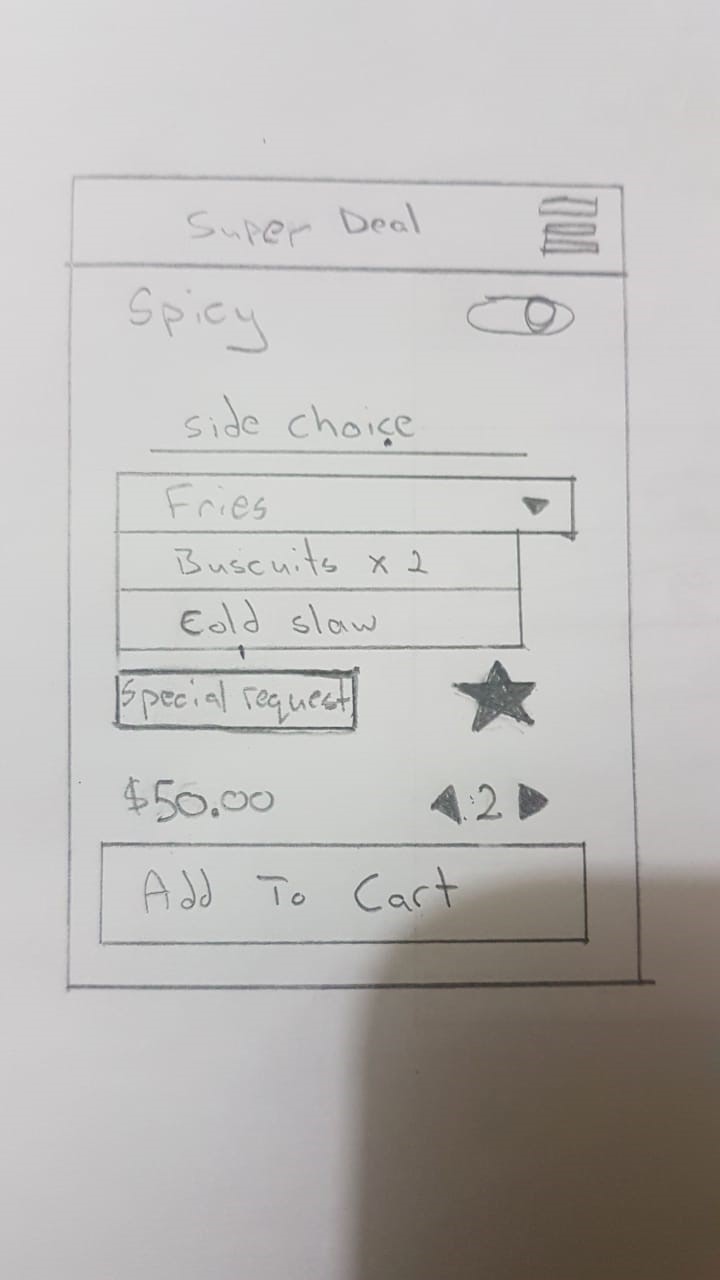 Super Deal
Spicy
side choice
Fries
Buscuits x 2
Cold slaw
Special request
$50.00
2
Add To Cart